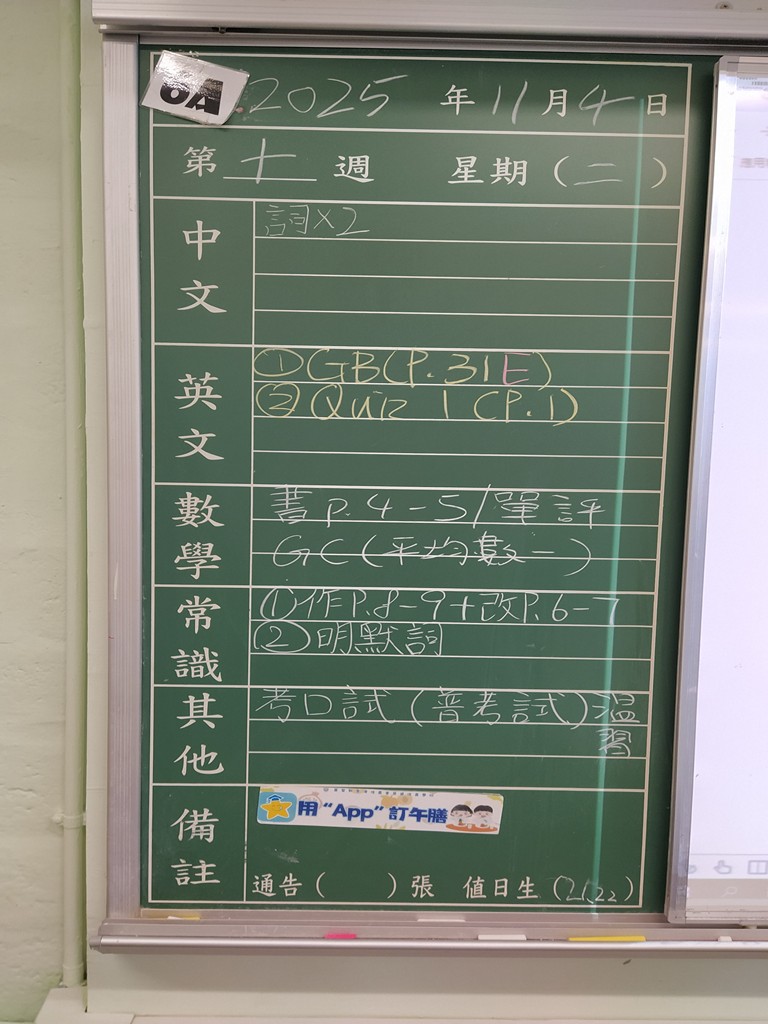 6A
2025 年 11 月 4 日
第 十 週 星期（二）
中文
詞×2
英文
①GB(P.31E)
②Quiz 1 (P.1)
數學
書P.4-5/單評
GC(平均數一)
常識
①作P.8-9+改P.6-7
②明默詞
其他
考口試(普考試)溫
習
備註
用“App”訂午膳
通告（ ）張 值日生（21,22）